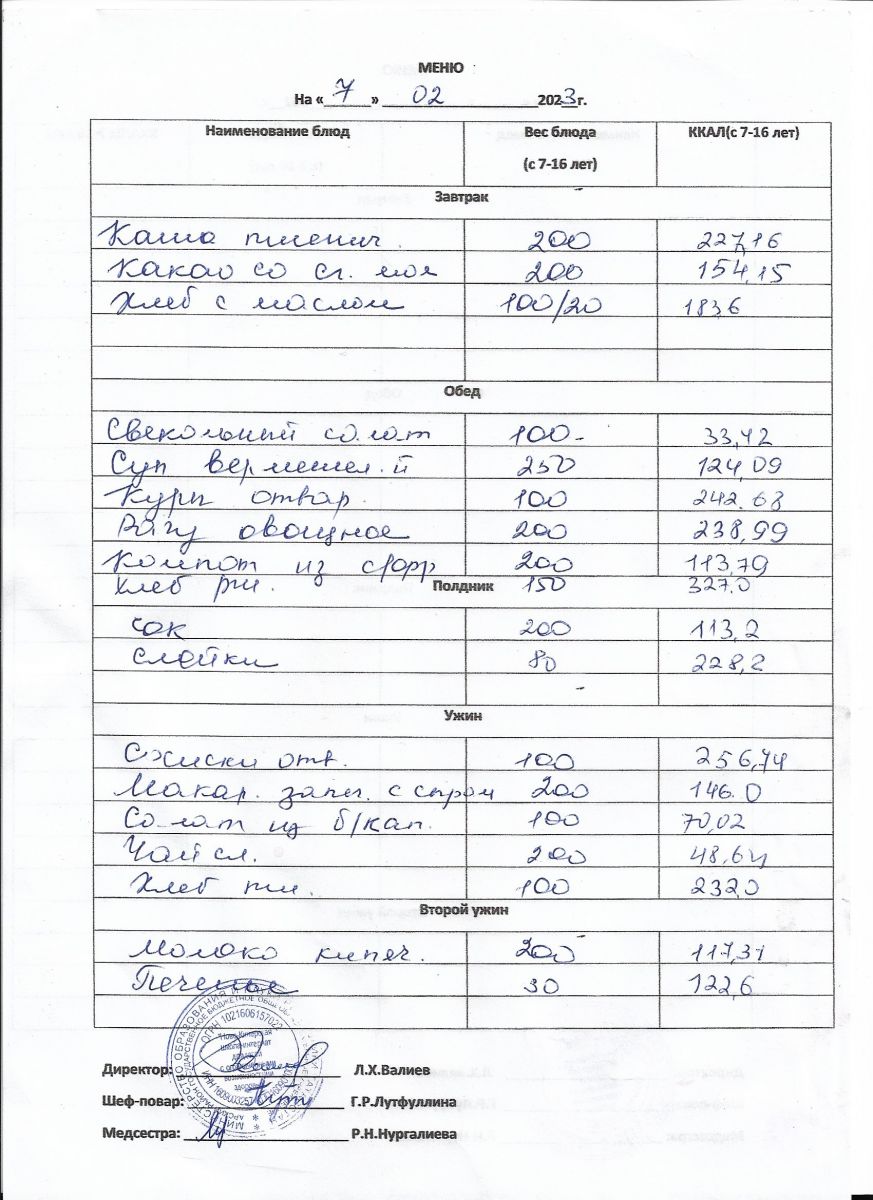 МЕНЮ
На « 7 » 02 2023г.
Наименование блюд Вес блюда ККАЛ(с 7-16 лет)
(с 7-16 лет)
Завтрак
Каша пшенич. 200 227,16
Какао со сг. мол 200 154,15
Хлеб с маслом 100/20 183,6
Обед
Свекольный салат 100- 33,42
Суп вермешел.й 250 124,09
Куры отвар. 100 242.68
Рагу овощное 200 238,99
Компот из с/фр 200 113,79
Хлеб рж. 150 327.0
Полдник
Сок 200 113,2
Слойки 80 228,2
Ужин
Сосиски отв. 100 256,74
Макар. запеч. с сыром 200 146.0
Салат из б/кап. 100 70,02
Чай сл. 200 48,64
Хлеб пш. 100 232,0
Второй ужин
Молоко кипеч. 200 117,31
Печенье 30 122,6
МИНИСТЕРСТВО ОБРАЗОВАНИЯ И
ГОСУДАРСТВЕННОЕ БЮДЖЕТНОЕ
ОГРН 1021606157022
школа-интернат
с ограниченными
возможностями
здоровья
Директор: Л.Х.Валиев
Шеф-повар: Г.Р.Лутфуллина
Медсестра: Р.Н.Нургалиева